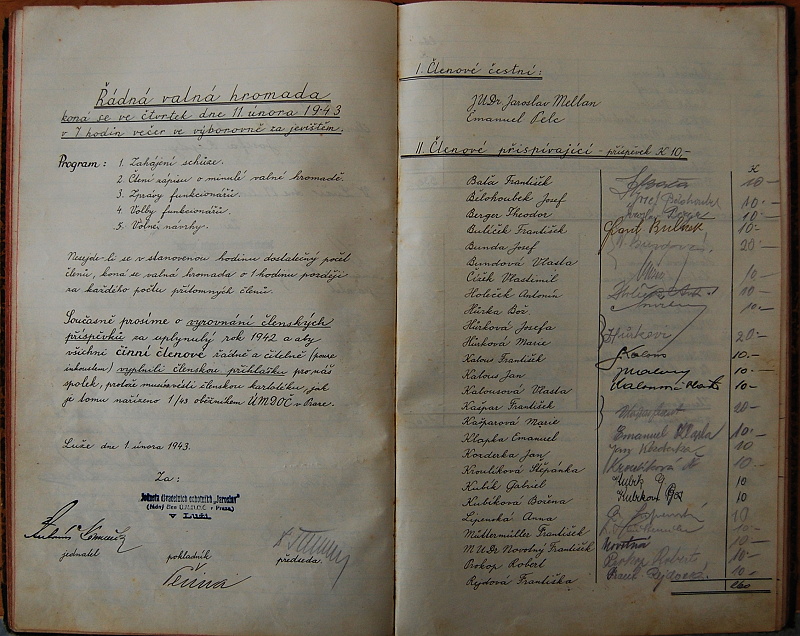 Řádná valná hromada
koná se ve čtvrtek dne 11. února 1943
v 7 hodin večer ve výborovně za jevištěm.
Program: 1. Zahájení schůze.
2. Čtení zápisu o minulé valné hromadě.
3. Zprávy funkcionářů.
4. Volby funkcionářů.
5. Volné návrhy.
Nesejde-li se v stanovenou hodinu dostatečný počet
členů, koná se valná hromada o 1 hodinu později
za každého počtu přítomných členů.
Současně prosíme o vyrovnání členských
příspěvků za uplynulý rok 1942 a aby
všichni činní členové řádně a čitelně (pouze
inkoustem) vyplnili členskou přihlášku pro náš
spolek, protože musíme vésti členskou kartotéku, jak
je tomu nařízeno 1/43 oběžníkem ÚMDOČ v Praze.
Luže dne 1. února 1943.
Za:
Jednota divadelních ochotníků „Jaroslav"
(řádný člen Ú.M.D.O.Č. v Praze)
v Luži
jednatel pokladník předseda.
I. Členové čestní:
JUDr Jaroslav Mellan
Emanuel Pelc
II. Členové přispívající - příspěvek K 10,-
K
Bača František 10-
Bělohoubek Josef 10-
Berger Theodor 10-
Bulíček František 10-
Bunda Josef 20-
Bundová Vlasta
Čížek Vlastimil 10-
Holeček Antonín 10-
Hůrka Boř. 10-
Hůrková Josefa Hůrkovi 20-
Hůrková Marie
Kalous František Kalous 10.-
Kalous Jan 10.-
Kalousová Vlasta 10-
Kašpar František 20-
Kašparová Marie
Klapka Emanuel Emanuel Klapka 10-
Kozderka Jan 10
Kroulíková Štěpánka Kroulíková Š 10-
Kubík Gabriel Kubík G 10
Kubíková Božena 10
Lipenská Anna 10
Müttermüller František 10-
MUDr Novotný František Novotná 10-
Prokop Robert Prokop Robert 10-
Rýdová Františka 10-
260